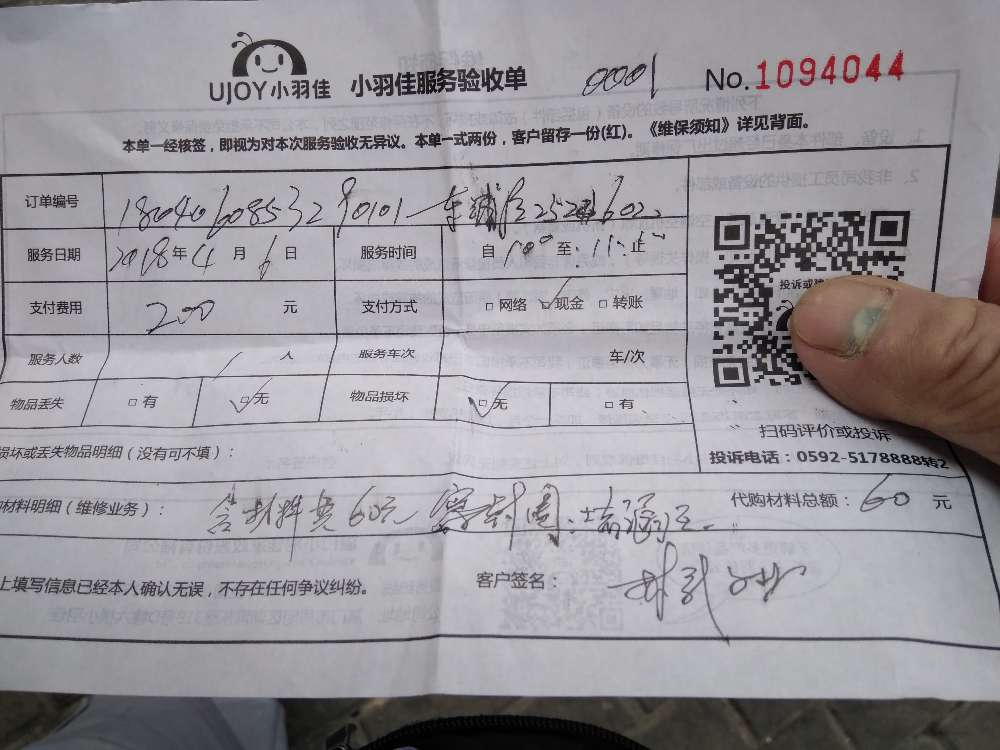 UJOY小羽佳 小羽佳服务验收单 0001 No.1094044
本单一经核签，即视为对本次服务验收无异议。本单一式两份，客户留存一份(红)。《维保须知》详见背面。
订单编号 1804060853290101
服务日期 2018年4月6日 服务时间 自 至 止
支付费用 200 元 支付方式 □网络 □现金 □转账
服务人数 1 人 服务车次 车/次
物品丢失 □有 □无 物品损坏 □无 □有
投诉或
扫码评价或投诉
投诉电话：0592-5178888转2
损坏或丢失物品明细（没有可不填）：
材料明细（维修业务）： 含材料费60元 密封圈 代购材料总额：60 元
上填写信息已经本人确认无误，不存在任何争议纠纷。 客户签名：